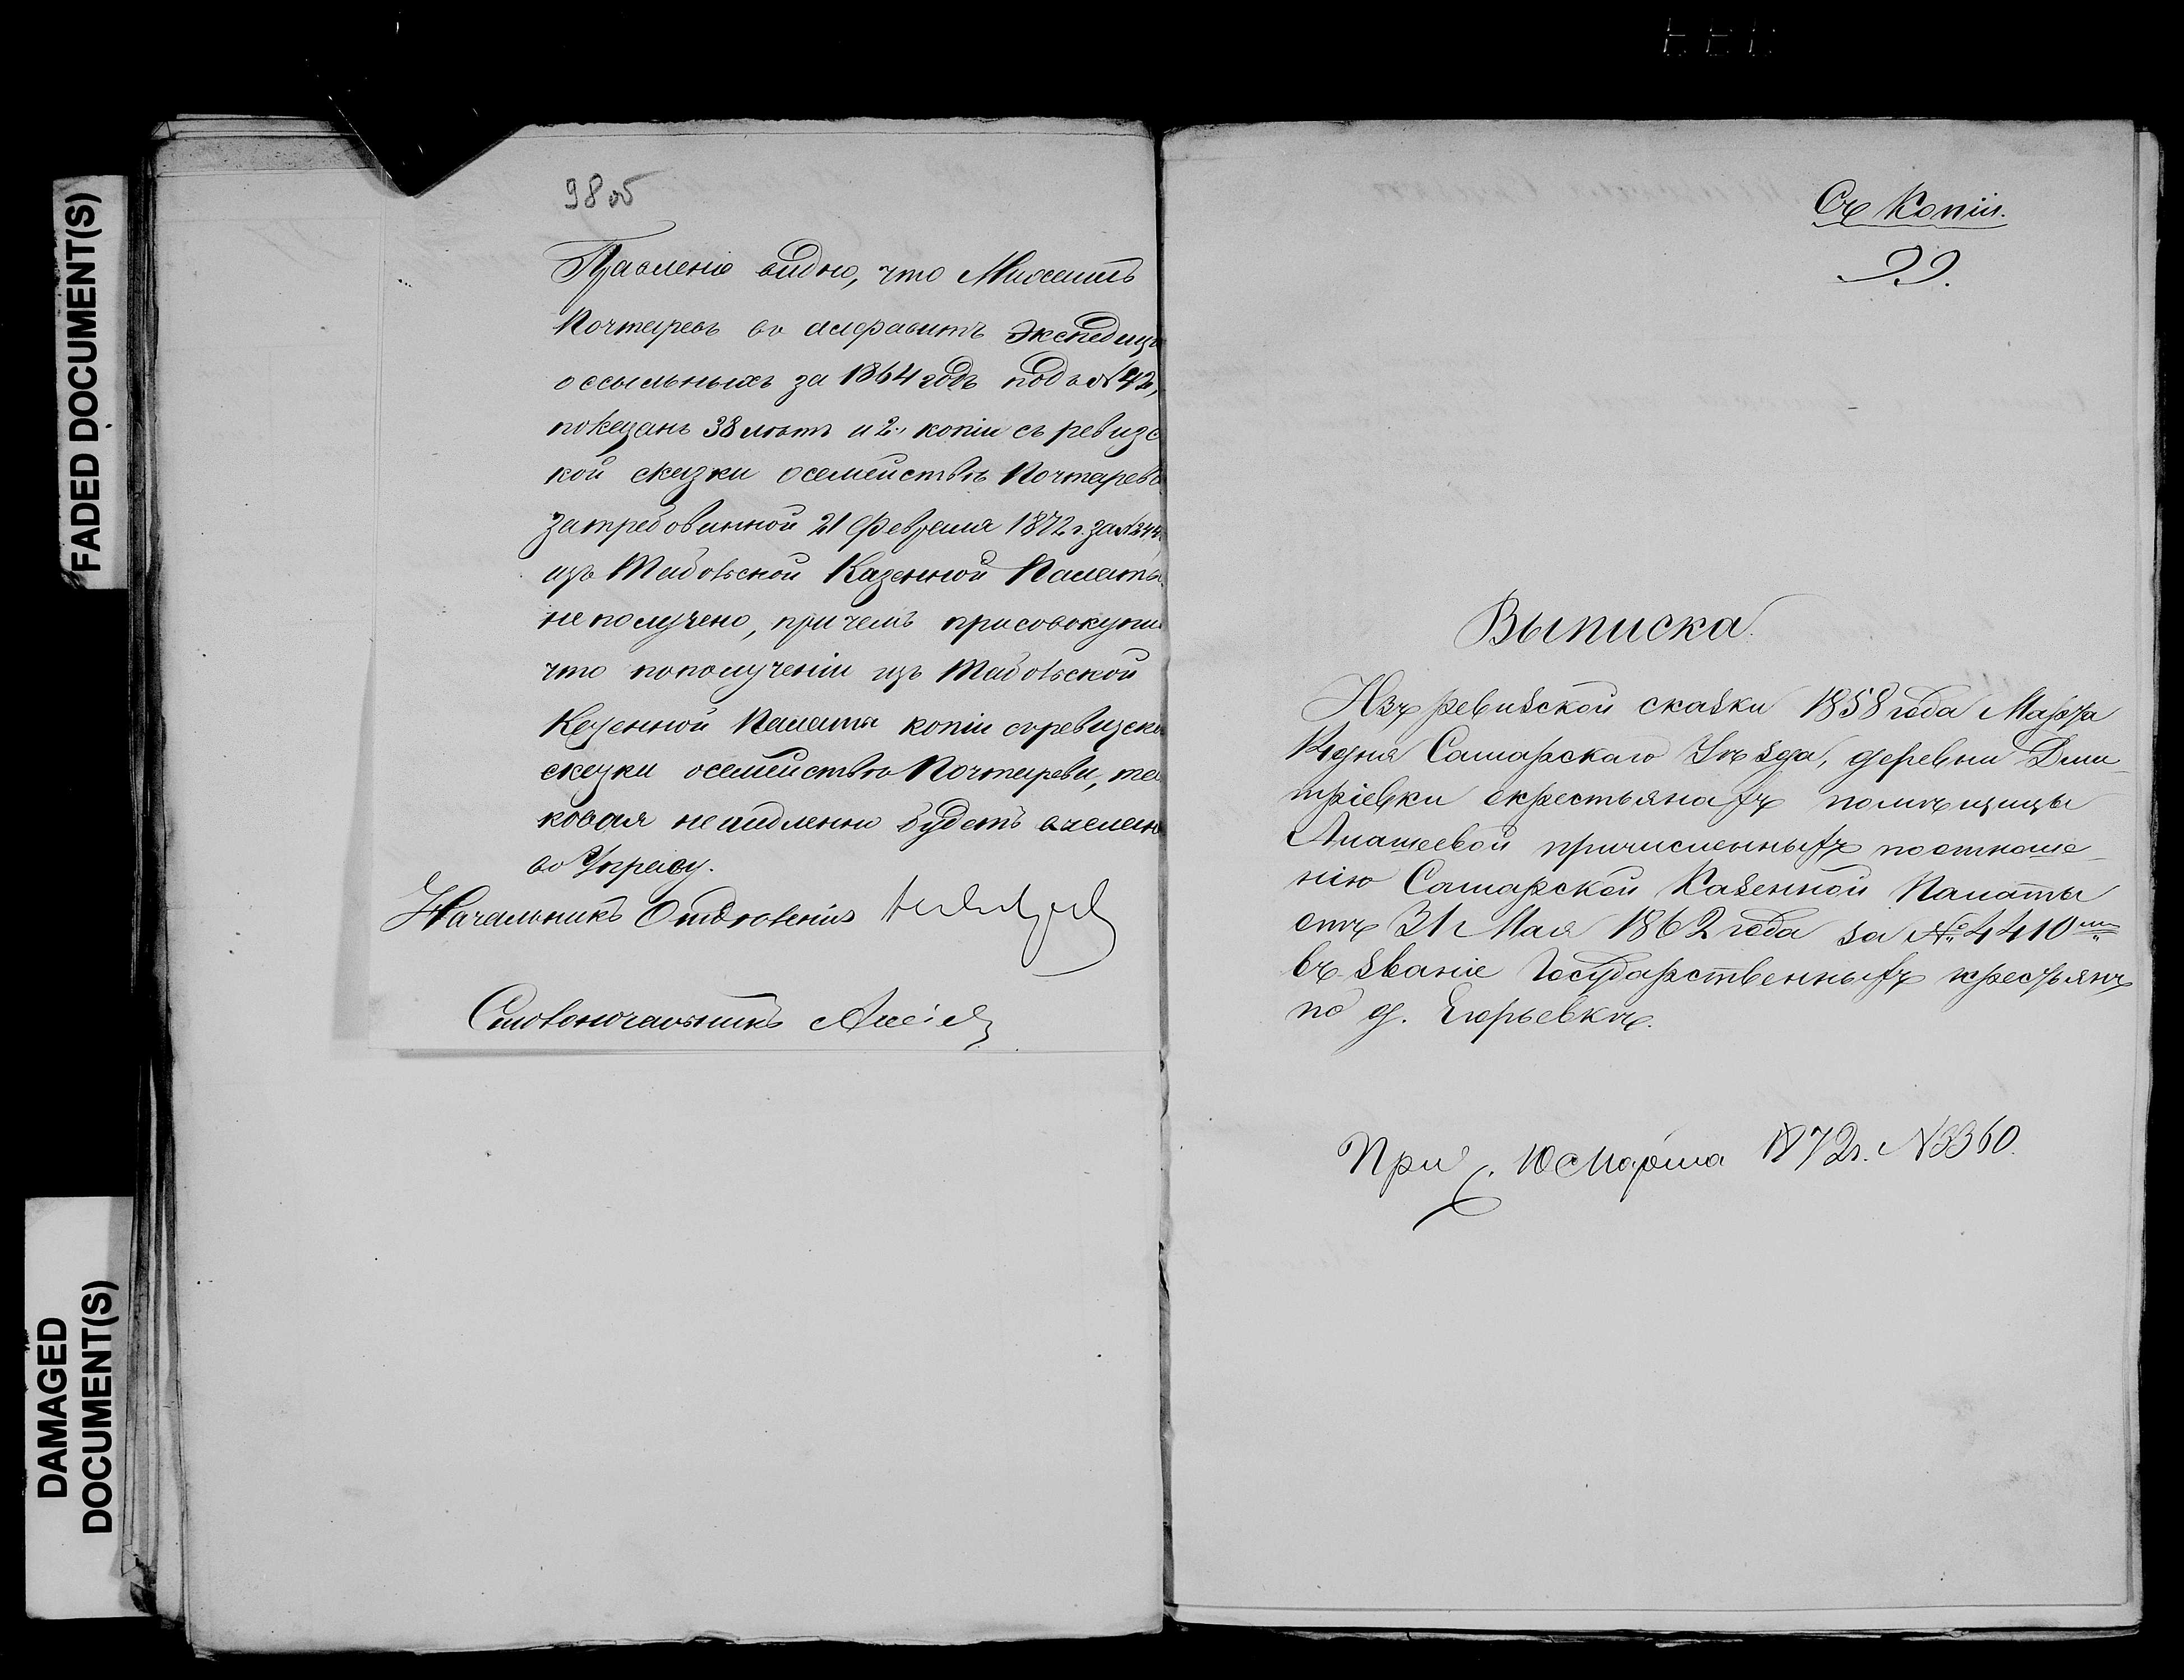 FADED DOCUMENT(S)
DAMAGED
DOCUMENT(S)
98 об
Правленія видно, что Михаилъ
Почтаревъ въ алфавитѣ Экспедиціи
о ссыльныхъ за 1864 годъ подъ №42,
показанъ 38 лѣтъ и 2. копіи съ ревизс
кой сказки о семействѣ Почтарева
затребованной 21 Февраля 1872 г. за №
изъ Тобольской Казенной Палаты
не получено, при чемъ присовокупи
что по полученіи изъ Тобольской
Казенной Палаты копіи съ ревизско
сказки о семействѣ Почтарева, та
ковая немедленно будетъ
во Управу.
Начальникъ Отдѣленія
Столоначальникъ
Съ Копіи.
99.
Выписка.
Изъ ревизской сказки 1858 года Марта
дня Самарскаго Уѣзда, деревни Дми-
тріевки о крестьянахъ помѣщицы
причисленныхъ по отноше-
нію Самарской Казенной Палаты
отъ 31 Мая 1862 года за №4410
въ званіе Государственныхъ крестьянъ
по д. Егорьевкѣ.
При 10 Марта 1872 г. №3360.